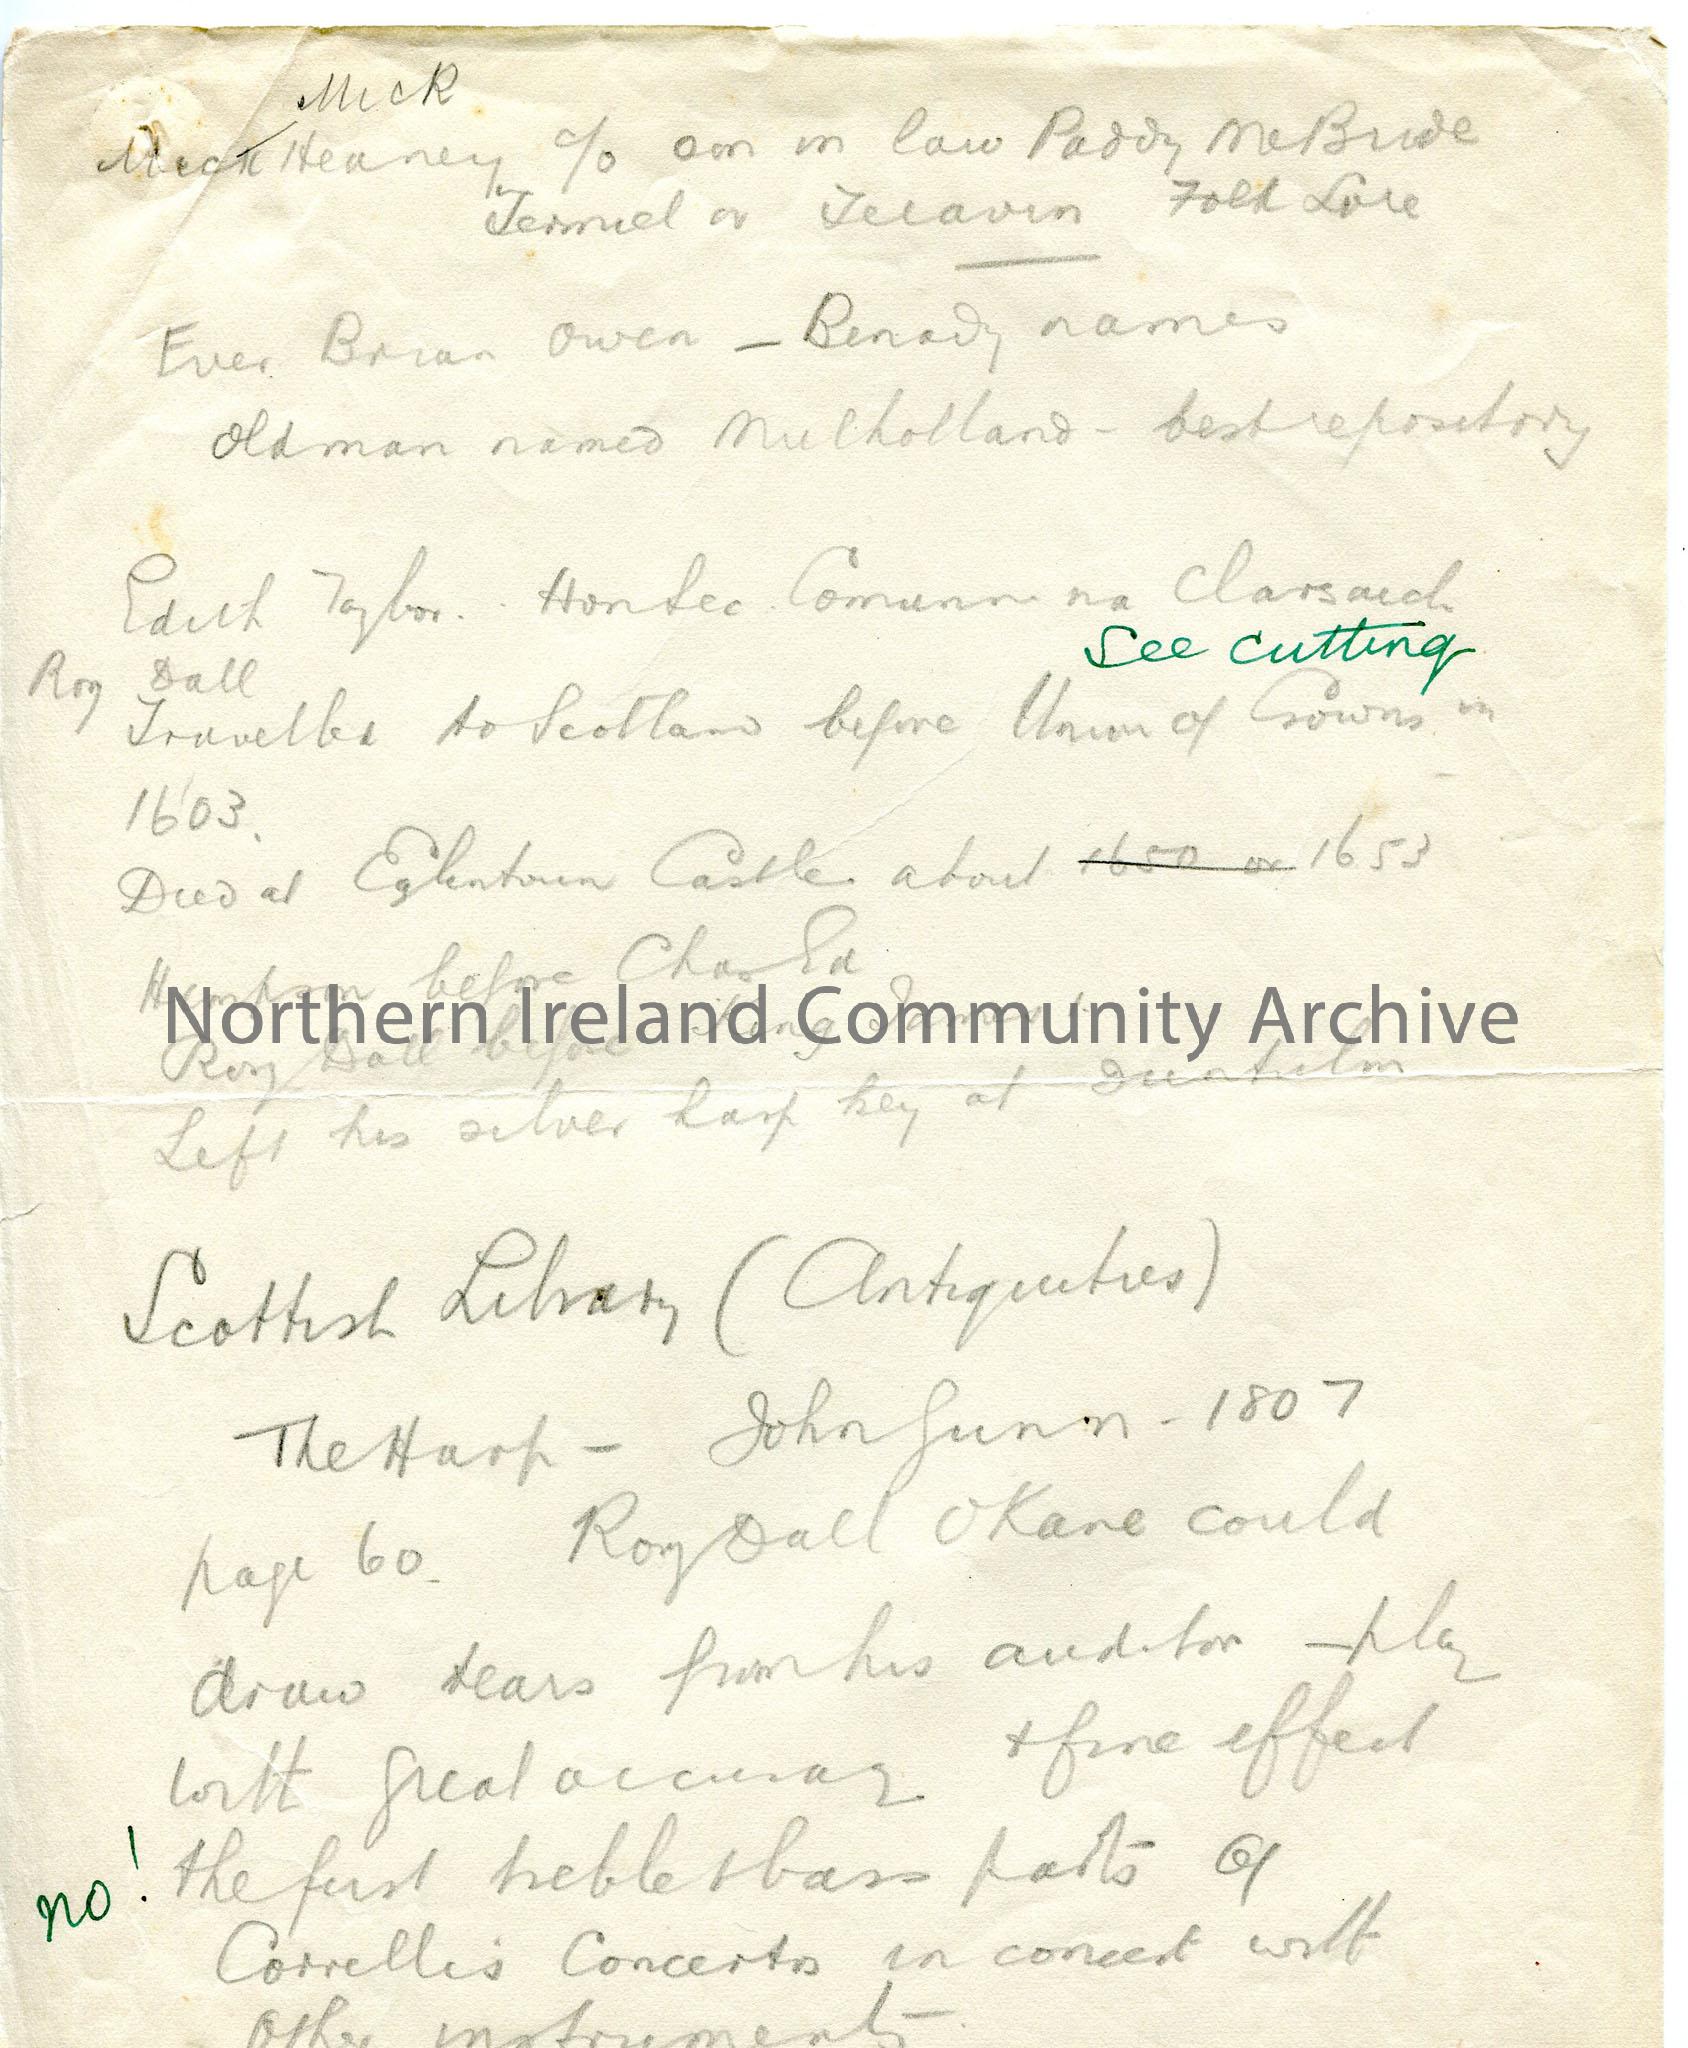 Mick
Mick Heaney c/o son in law Paddy McBride
Termiel or Teeavin Folk Lore
Ever Brian Owen – Benady names
Old man named Mulholland - best repository
Edith Taylor. Hon Sec. Comunn na Clarsaich
See cutting
Rory Dall
Travelled to Scotland before Union of Crowns in
1603.
Died at Eglintoun Castle about 1650 or 1653
Hempson before Chas Ed
Northern Ireland Community Archive
Rory Dall before King James
Left his silver harp key at
Scottish Library (Antiquities)
The Harp – John Gunn - 1807
page 60. Rory Dall O'Kane could
draw tears from his auditor – play
with great accuracy & fine effect
no! the first treble & bass parts of
Correllis Concertos in concert with
other instruments